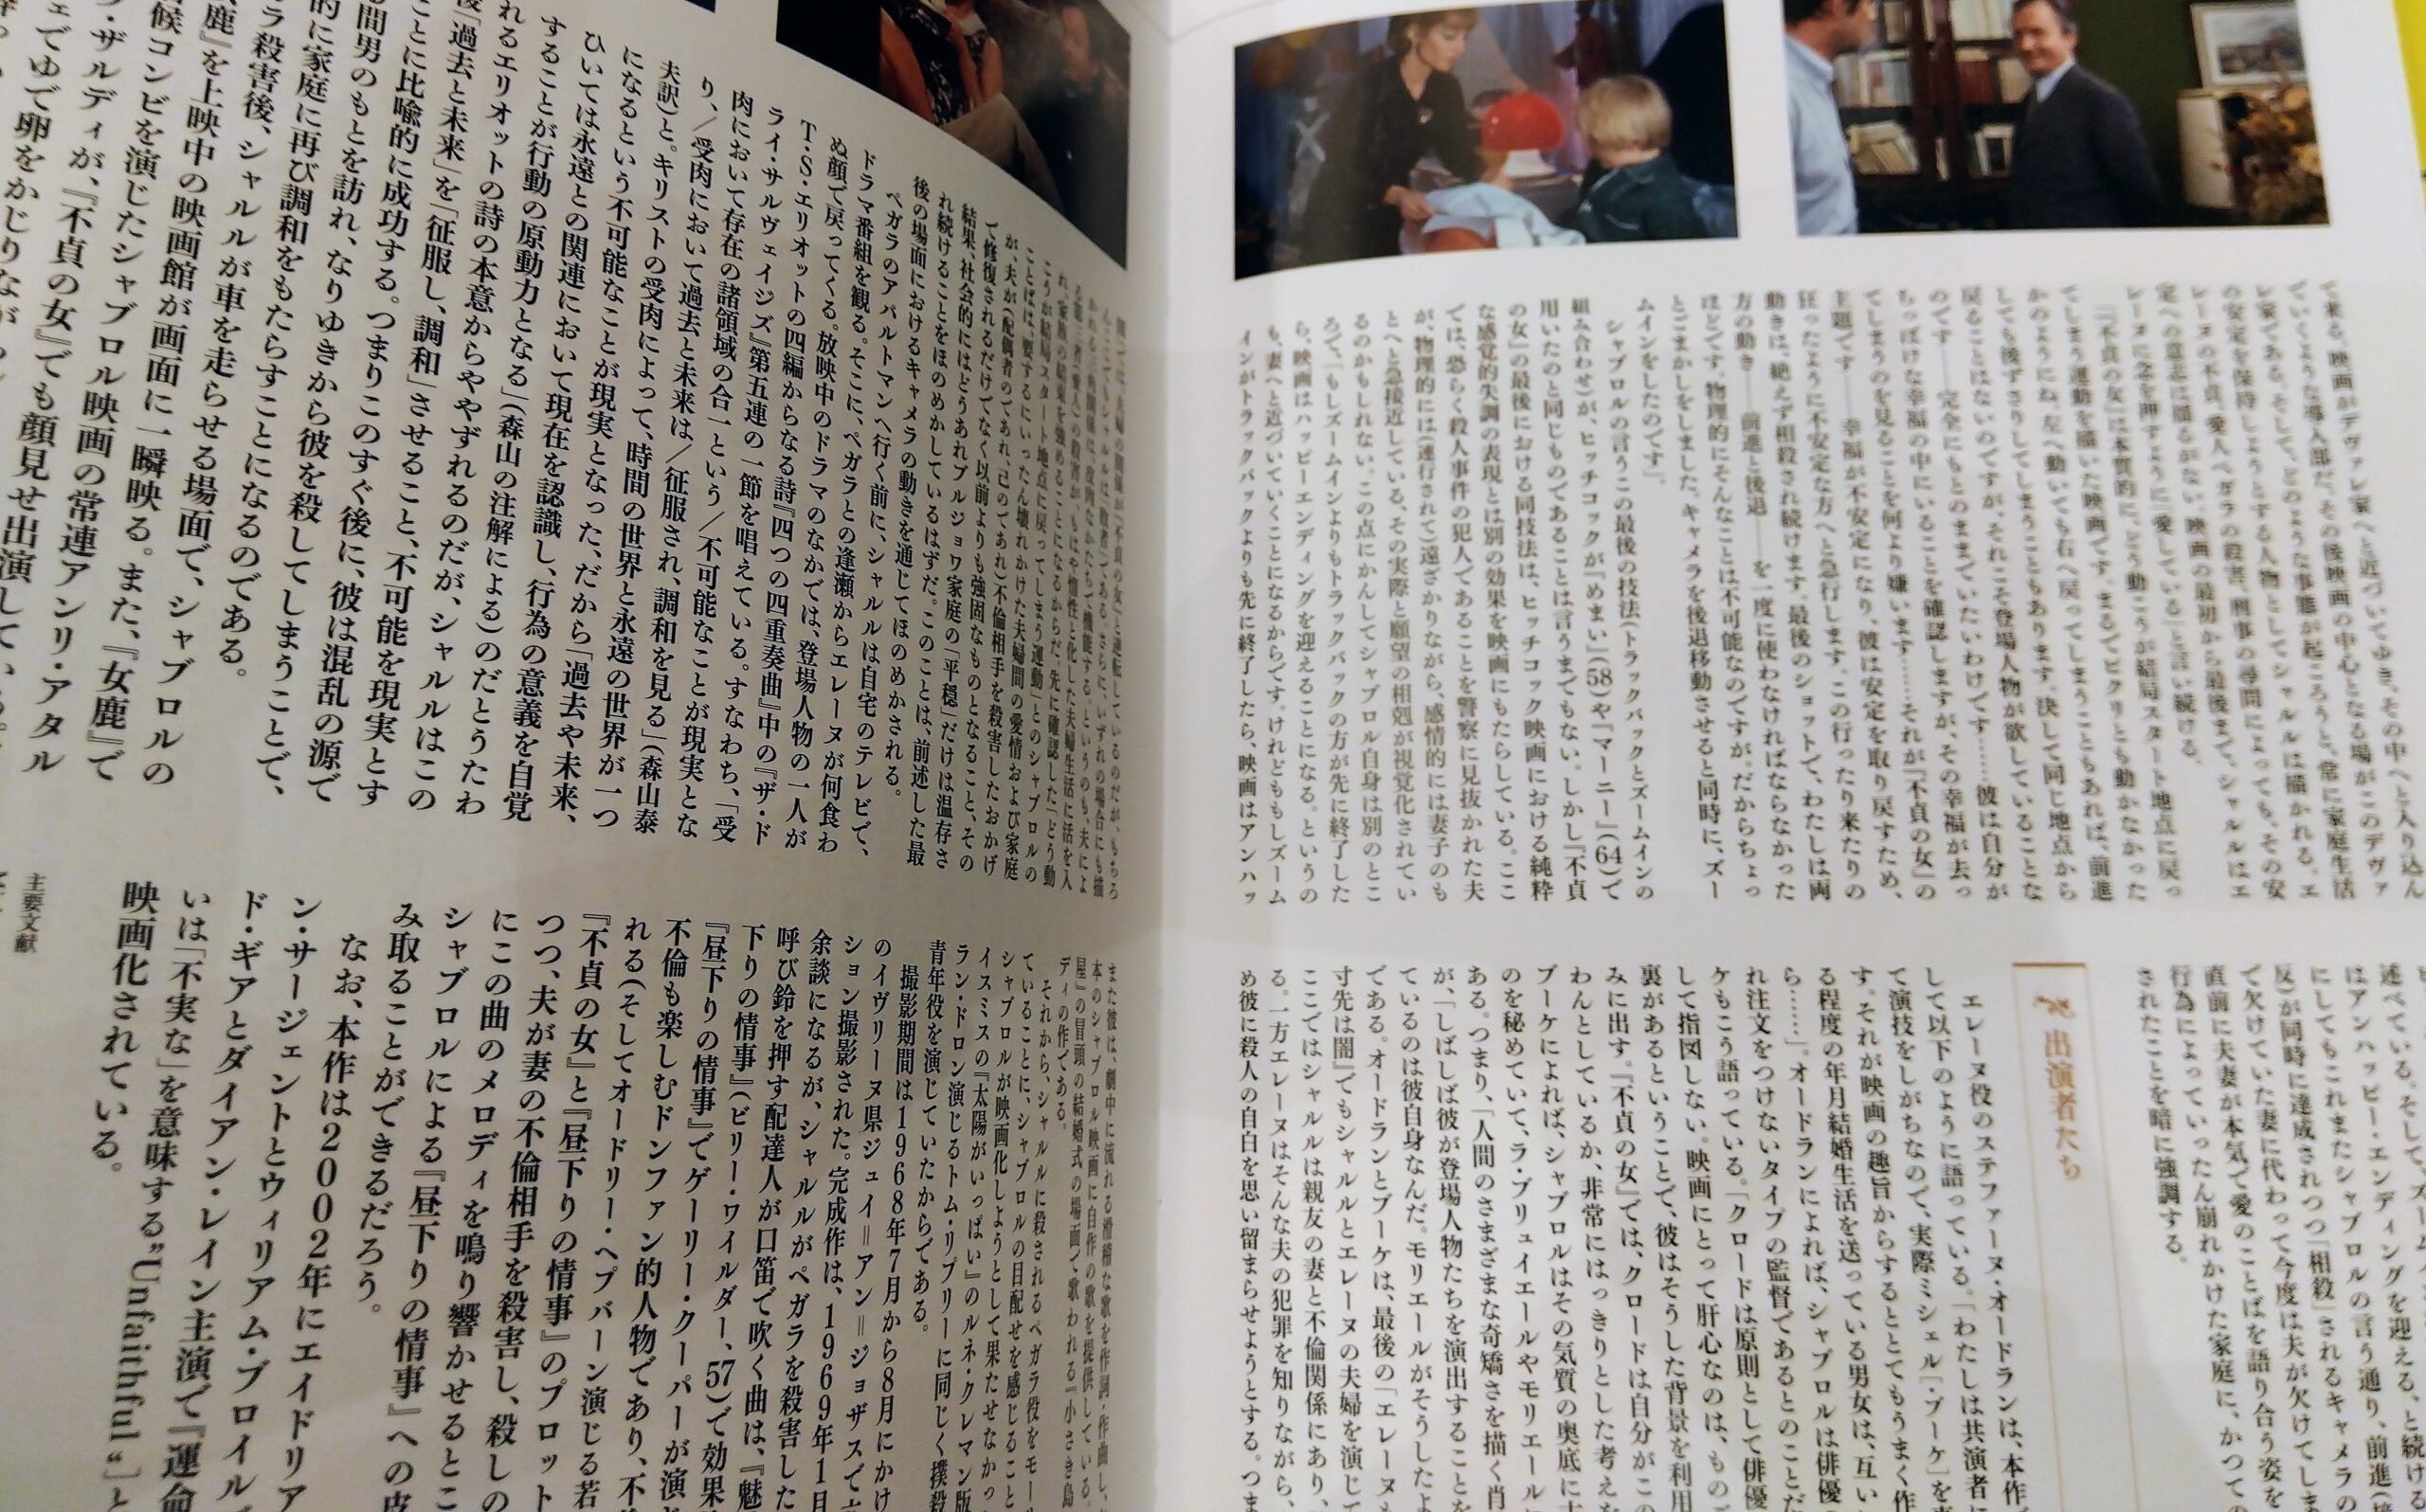 て来る。映画がデヴァレ家へと近づいてゆき、その中へと入り込ん
でいくような導入部だ。その後映画の中心となる場がこのデヴァ
レ家である。そして、どのような事態が起ころうと、常に家庭生活
の安定を保持しようとする人物としてシャルルは描かれる。エ
レーヌの不貞、愛人ペガラの殺害、刑事の尋問によっても、その安
定への意志は揺るがない。映画の最初から最後まで、シャルルはエ
レーヌに念を押すように「愛している」と言い続ける。
「『不貞の女』は本質的に、どう動こうが結局スタート地点に戻っ
てしまう運動を描いた映画です。まるでピクリとも動かなかった
かのようにね。左へ動いても右へ戻ってしまうこともあれば、前進
しても後ずさりしてしまうこともあります。決して同じ地点から
戻ることはないのですが、それこそ登場人物が欲していることな
のです――完全にもとのままでいたいわけです……彼は自分が
ちっぽけな幸福の中にいることを確認しますが、その幸福が去っ
てしまうのを見ることを何より嫌います……それが『不貞の女』の
主題です――幸福が不安定になり、彼は安定を取り戻すため、
狂ったように不安定な方へと急行します。この行ったり来たりの
動きは、絶えず相殺され続けます。最後のショットで、わたしは両
方の動き――前進と後退――を一度に使わなければならなかった
ほどです。物理的にそんなことは不可能なのですが。だからちょっ
とごまかしをしました。キャメラを後退移動させると同時に、ズー
ムインをしたのです」。
シャブロルの言うこの最後の技法(トラックバックとズームインの
組み合わせ)が、ヒッチコックが『めまい』(58)や『マーニー』(64)で
用いたのと同じものであることは言うまでもない。しかし『不貞
の女』の最後における同技法は、ヒッチコック映画における純粋
な感覚的失調の表現とは別の効果を映画にもたらしている。ここ
では、恐らく殺人事件の犯人であることを警察に見抜かれた夫
が、物理的には(連行されて)遠ざかりながら、感情的には妻子のも
とへと急接近している、その実際と願望の相剋が視覚化されてい
るのかもしれない。この点にかんしてシャブロル自身は別のとこ
ろで、「もしズームインよりもトラックバックの方が先に終了した
ら、映画はハッピーエンディングを迎えることになる。というの
も、妻へと近づいていくことになるからです。けれどももしズーム
インがトラックバックよりも先に終了したら、映画はアンハッ
述べている。そして、ズーム
はアンハッピー・エンディングを迎える、と続ける
にしてもこれまたシャブロルの言う通り、前進(
反)が同時に達成されつつ「相殺」されるキャメラの
て欠けていた妻に代わって今度は夫が欠けてしま
直前に夫妻が本気で愛のことばを語り合う姿を
行為によっていったん崩れかけた家庭に、かつての
されたことを暗に強調する。
出演者たち
エレーヌ役のステファーヌ・オードランは、本作
して以下のように語っている。「わたしは共演者に
て演技をしがちなので、実際ミシェル[・ブーケ]を
す。それが映画の趣旨からするととてもうまく作
る程度の年月結婚生活を送っている男女は、互い
ら……」。オードランによれば、シャブロルは俳優
れ注文をつけないタイプの監督であるとのことだ
ケもこう語っている。「クロードは原則として俳優
して指図しない。映画にとって肝心なのは、もの
裏があるということで、彼はそうした背景を利用
みに出す。『不貞の女』では、クロードは自分がこの
わんとしているか、非常にはっきりとした考えを
ブーケによれば、シャブロルはその気質の奥底に
のを秘めていて、ラ・ブリュイエールやモリエール
ある。つまり、「人間のさまざまな奇矯さを描く肖
が、「しばしば彼が登場人物たちを演出することを
ているのは彼自身なんだ。モリエールがそうしたよ
である。オードランとブーケは、最後の「エレーヌも
寸先は闇』でもシャルルとエレーヌの夫婦を演じて
ここではシャルルは親友の妻と不倫関係にあり、
る。一方エレーヌはそんな夫の犯罪を知りながら、
め彼に殺人の自白を思い留まらせようとする。つま
こうが結局スタート地点に戻ってしまう運動」とのシャブロルの
ことばは、要するにいったん壊れかけた夫婦間の愛情および家庭
が、夫が(配偶者のであれ、己のであれ)不倫相手を殺害したおかげ
で修復されるだけでなく以前よりも強固なものとなること、その
結果、社会的にはどうあれブルジョワ家庭の「平穏」だけは温存さ
れ続けることをほのめかしているはずだ。このことは、前述した最
後の場面におけるキャメラの動きを通じてほのめかされる。
ペガラのアパルトマンへ行く前に、シャルルは自宅のテレビで、
ドラマ番組を観る。そこに、ペガラとの逢瀬からエレーヌが何食わ
ぬ顔で戻ってくる。放映中のドラマのなかでは、登場人物の一人が
T・S・エリオットの四編からなる詩『四つの四重奏曲』中の『ザ・ド
ライ・サルヴェイジズ』第五連の一節を唱えている。すなわち、「受
肉において存在の諸領域の合一という/不可能なことが現実とな
り、/受肉において過去と未来は/征服され、調和を見る」(森山泰
夫訳)と。キリストの受肉によって、時間の世界と永遠の世界が一つ
になるという不可能なことが現実となった、だから「過去や未来、
ひいては永遠との関連において現在を認識し、行為の意義を自覚
することが行動の原動力となる」(森山の注解による)のだとうたわ
れるエリオットの詩の本意からややずれるのだが、シャルルはこの
後「過去と未来」を「征服し、調和」させること、不可能を現実とす
ことに比喩的に成功する。つまりこのすぐ後に、彼は混乱の源で
間男のもとを訪れ、なりゆきから彼を殺してしまうことで、
的に家庭に再び調和をもたらすことになるのである。
ラ殺害後、シャルルが車を走らせる場面で、シャブロルの
鹿』を上映中の映画館が画面に一瞬映る。また、『女鹿』で
候コンビを演じたシャブロル映画の常連アンリ・アタル
・ザルディが、『不貞の女』でも顔見せ出演している。
ェでゆで卵をかじりながら
また彼は、劇中に流れる滑稽な歌を作詞・作曲し、
本のシャブロル映画に自作の歌を提供している。
屋』の冒頭の結婚式の場面で歌われる『小さき島
ディの作である。
それから、シャルルに殺されるペガラ役をモー
ていることに、シャブロルの目配せを感じること
シャブロルが映画化しようとして果たせなかっ
イスミスの『太陽がいっぱい』のルネ・クレマン版
ラン・ドロン演じるトム・リプリーに同じく撲殺
青年役を演じていたからである。
撮影期間は1968年7月から8月にかけ
のイヴリーヌ県ジュイ=アン=ジョザスで
ション撮影された。完成作は、1969年1月
余談になるが、シャルルがペガラを殺害した
呼び鈴を押す配達人が口笛で吹く曲は、『魅
下りの情事』(ビリー・ワイルダー、57)で効果
『昼下りの情事』でゲーリー・クーパーが演
不倫も楽しむドンファン的人物であり、不
れる(そしてオードリー・ヘプバーン演じる若
『不貞の女』と『昼下りの情事』のプロット
つつ、夫が妻の不倫相手を殺害し、殺しの
にこの曲のメロディを鳴り響かせるとこ
シャブロルによる『昼下りの情事』への皮
み取ることができるだろう。
なお、本作は2002年にエイドリア
ン・サージェントとウィリアム・ブロイル
ド・ギアとダイアン・レイン主演で『運命
いは「不実な」を意味する"Unfaithful"]と
映画化されている。
主要文献